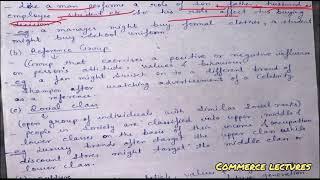 Like a man performs a role of son, father, husband
employee, student etc so his role affect its buying
decision
e.g a manager might buy formal clothes, a student
might buy school uniform.
(b) Reference Group
(Group that exercises a positive or negative influence
on person's attitude, values & behaviour)
e.g a fan might switch on to a different brand of
shampoo after watching advertisement of a celebrity
as a reference.
(c) Social class
(open group of individuals with similar social rank)
people in society are classified into upper, middle &
lower classes on the basis of their income, occupation
e.g luxury brands often target the upper class while
discount stores might target the middle class or
lower class.
values
generation
Commerce lectures